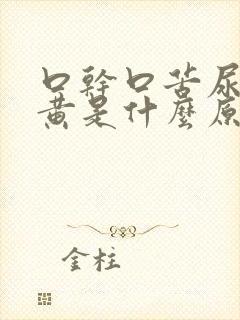 口幹口苦尿
黃是什麼原
金柱